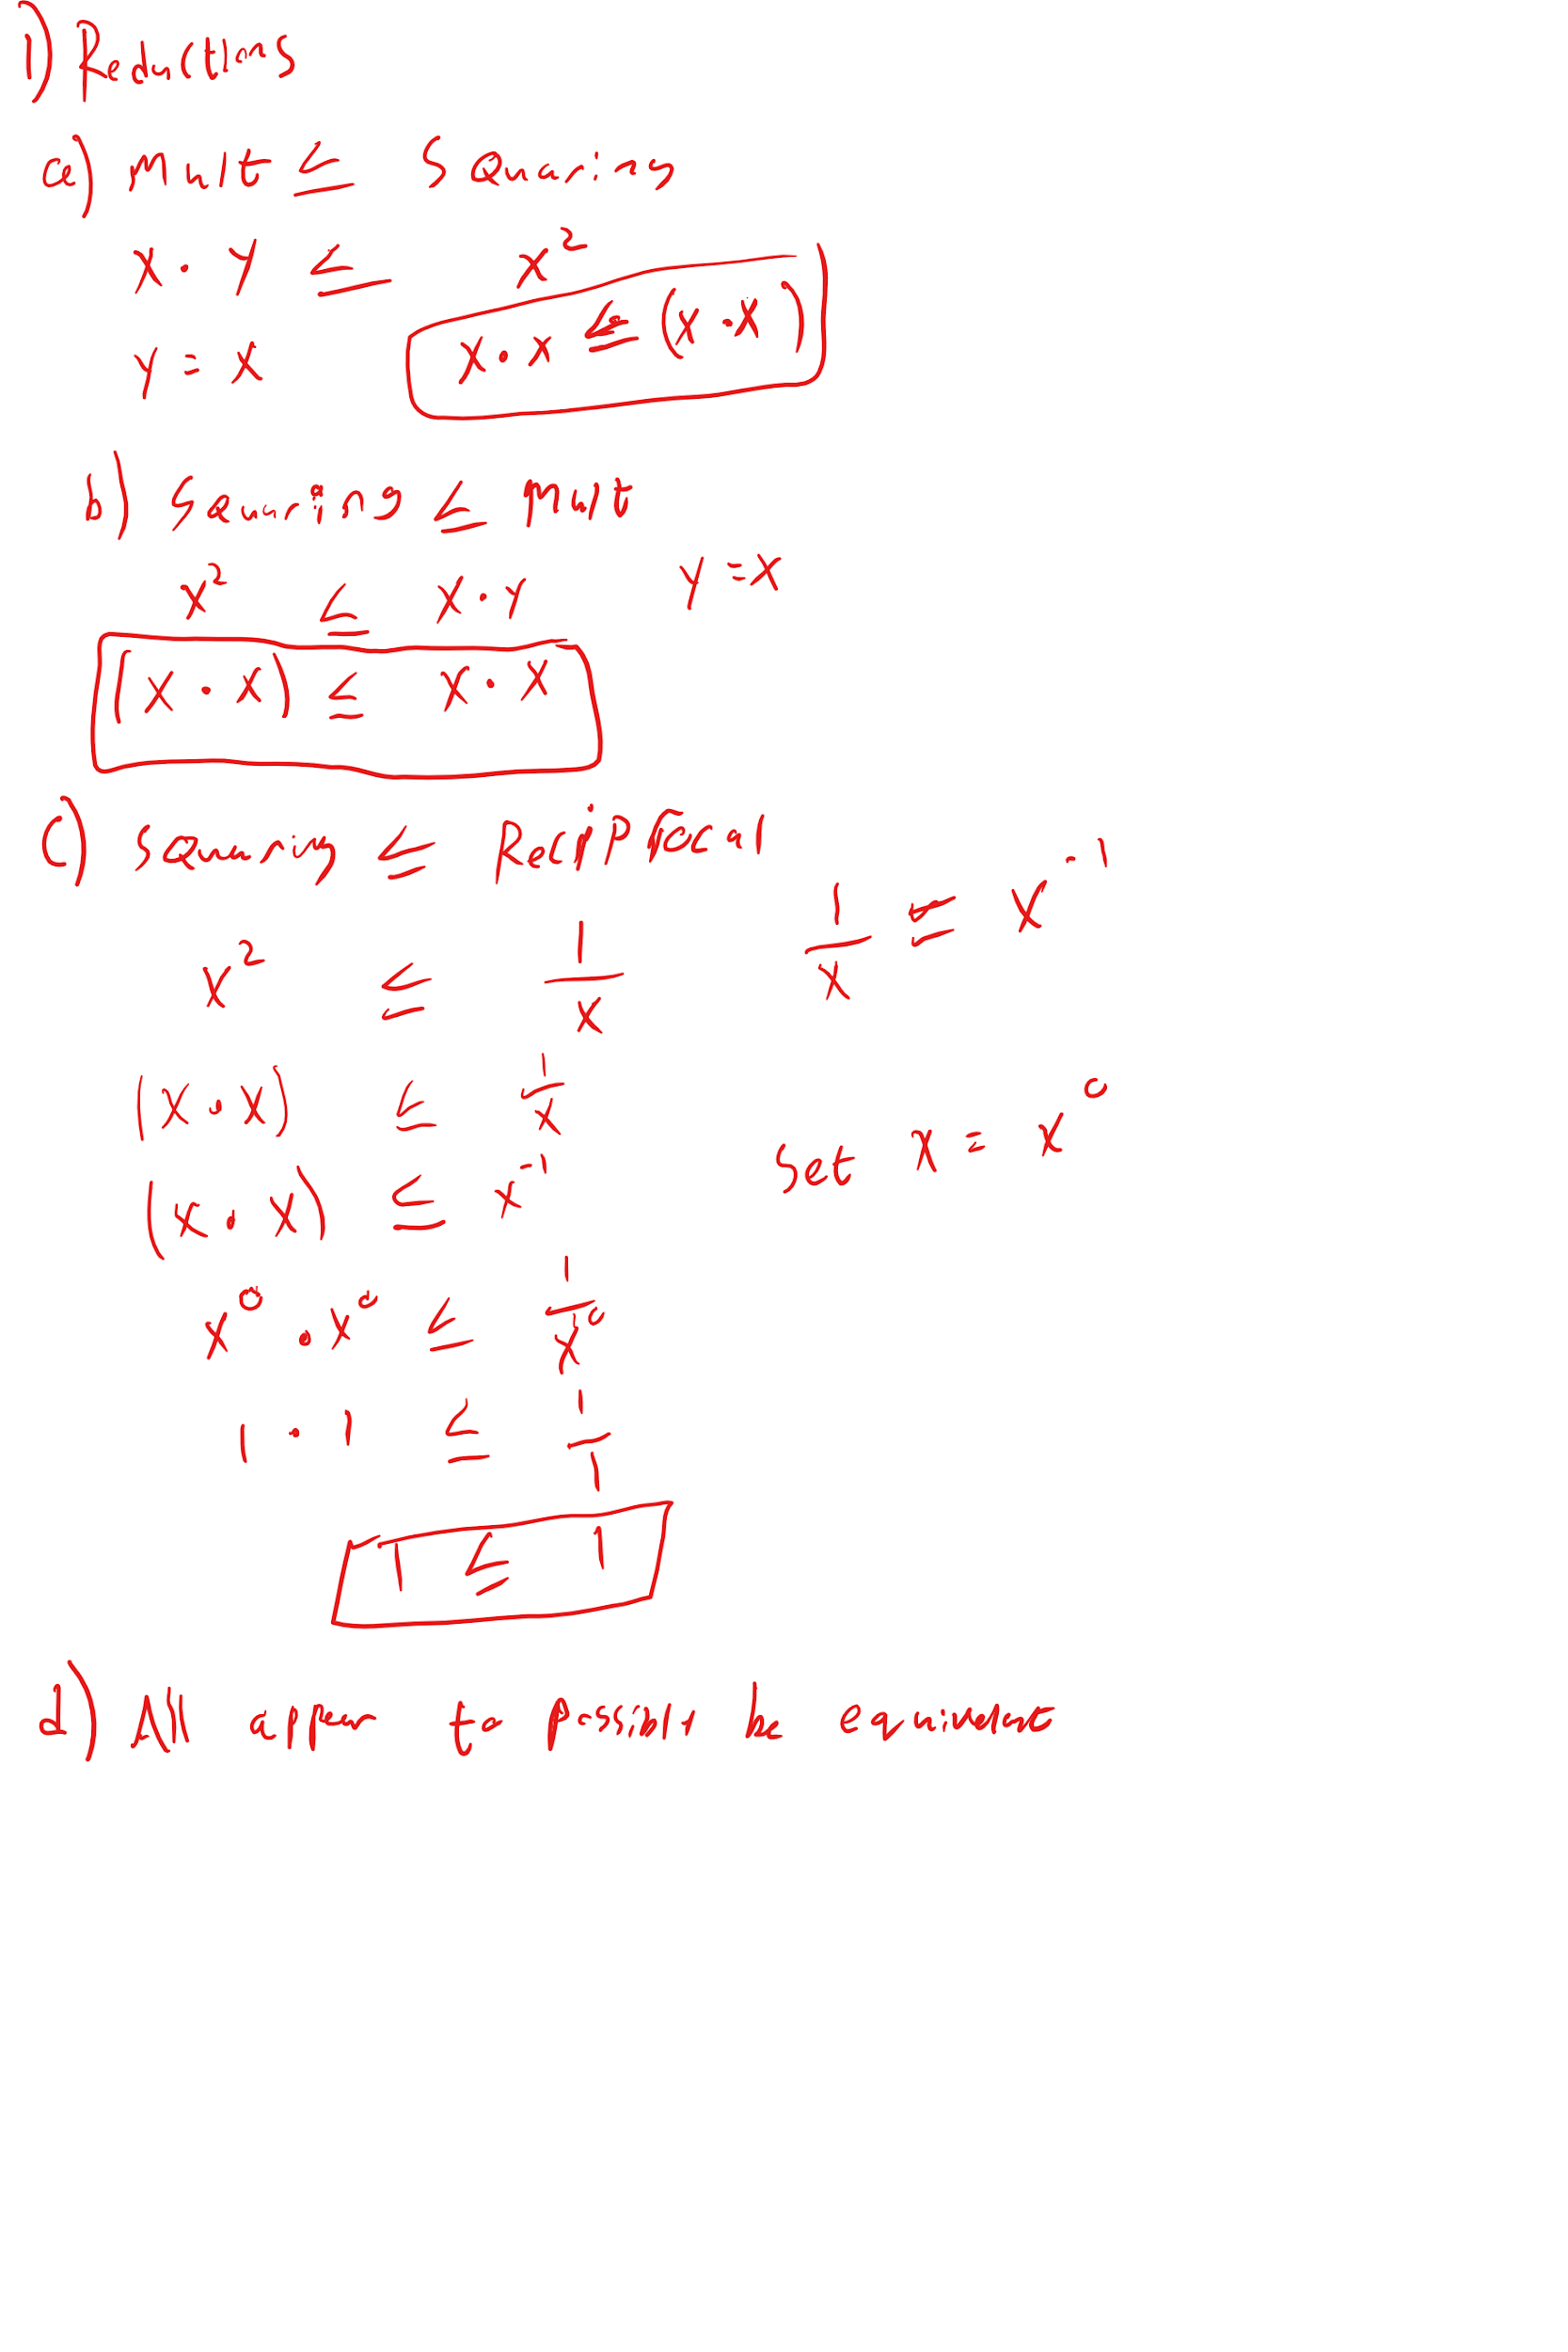 1) Reductions
a) Mult ≤ Squaring
x · y ≤ x²
y = x x · x ≤ (x · x)
b) Squaring ≤ Mult
x² ≤ x · y y = x
(x · x) ≤ x · x
c) Squaring ≤ Reciprocal
x² ≤ 1/x 1/x = x⁻¹
(x · x) ≤ 1/x
(x · x) ≤ x⁻¹ Set x = x⁰
x⁰ · x⁰ ≤ 1/x⁰
1 · 1 ≤ 1/1
1 ≤ 1
d) All appear to possibly be equivalent